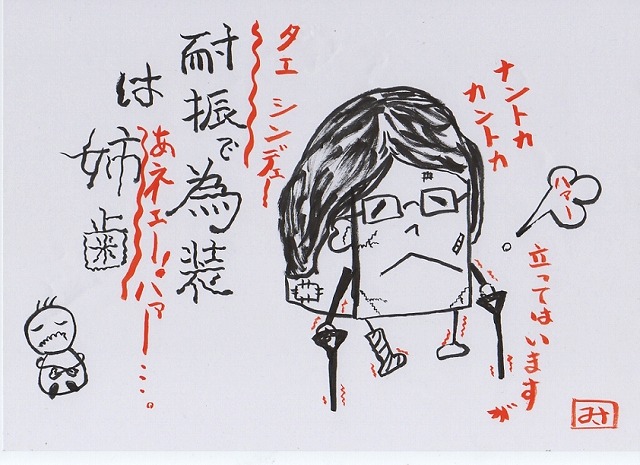 ハァー
立ってはいますが
ナントカ
カントカ
タエ シンデェー
耐振で為装
は姉歯
あネェー!!ハァー…。
みさ